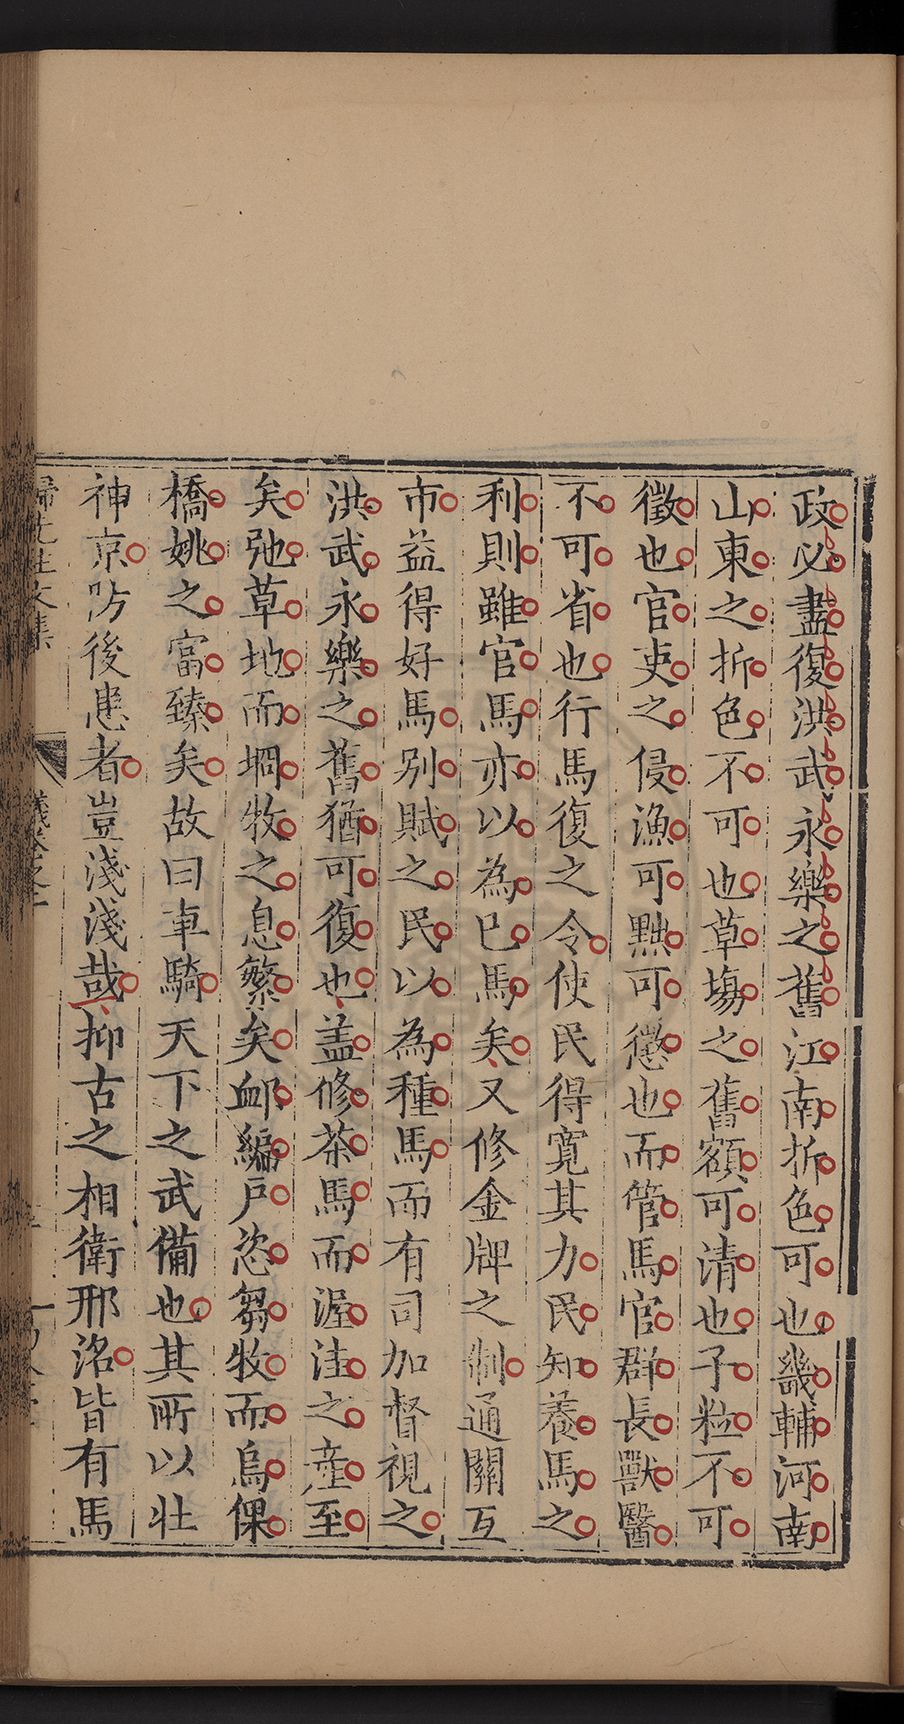 政必盡復洪武永樂之舊江南折色可也畿輔河南
山東之折色不可也草塲之舊額可清也子粒不可
徵也官吏之侵漁可黜可懲也而管馬官群長獸醫
不可省也行馬復之令使民得寛其力民知養馬之
利則雖官馬亦以為已馬矣又修金牌之制通關互
市益得好馬别賦之民以為種馬而有司加督視之
洪武永樂之舊猶可復也盖修茶馬而渥洼之産至
矣弛草地而坰牧之息繁矣䘏編戸恣芻牧而烏倮
橋姚之富臻矣故曰車騎天下之武備也其所以壯
神京防後患者豈淺淺哉抑古之相衛邢洺皆有馬